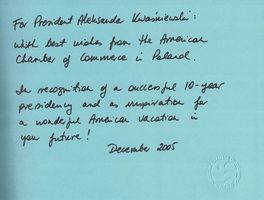 For President Aleksander Kwaśniewski:
With best wishes from the American
Chamber of Commerce in Poland.
In recognition of a successful 10-year
presidency and as inspiration for
a wonderful American vacation in
your future!
December 2005